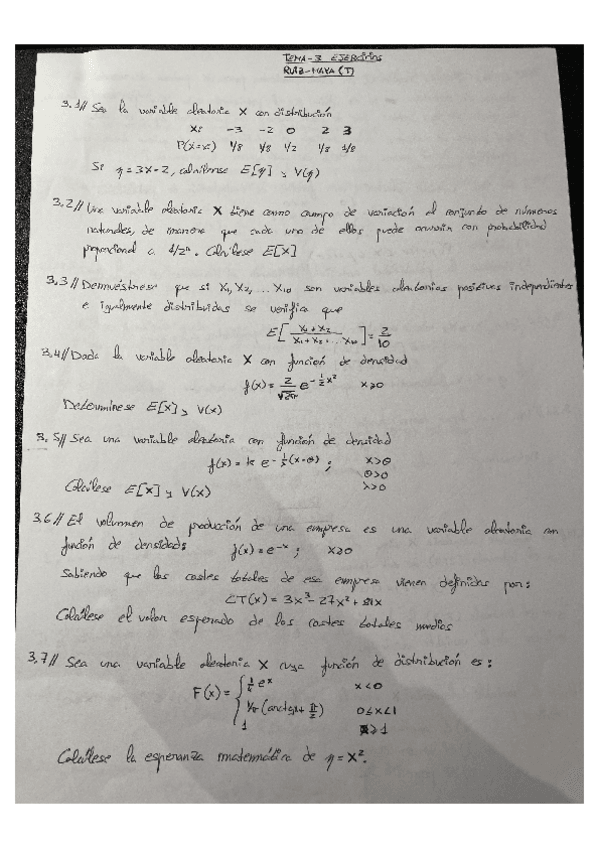 TEMA-3 EJERCICIOS
RUIZ-MAYA (T)
3.1// Sea la variable aleatoria X con distribución
Xi -3 -2 0 2 3
P(X=x) 1/8 1/8 1/2 1/8 1/8
Si η=3X-2, calcúlense E[η] y V(η)
3.2// Una variable aleatoria X tiene como campo de variación el conjunto de números
naturales, de manera que cada uno de ellos puede ocurrir con probabilidad
proporcional a 1/2ⁿ. Calcúlese E[X]
3.3// Demuéstrese que si X₁, X₂, ... X₁₀ son variables aleatorias positivas independientes
e igualmente distribuidas se verifica que
E[(X₁+X₂)/(X₁+X₂+...X₁₀)]=2/10
3.4// Dada la variable aleatoria X con función de densidad
f(x)=2/√2π e^(-1/2 x²) x≥0
Determínese E[X] y V(X)
3.5// Sea una variable aleatoria con función de densidad
f(x)=k e^(-1/5(x-θ)); x>θ
θ>0
λ>0
Calcúlese E[X] y V(X)
3.6// El volumen de producción de una empresa es una variable aleatoria con
función de densidad:
f(x)=e^(-x); x≥0
Sabiendo que los costes totales de esa empresa vienen definidos por:
CT(x)=3x³-27x²+81x
Calcúlese el valor esperado de los costes totales medios
3.7// Sea una variable aleatoria X cuya función de distribución es:
F(x)= { 1/4 eˣ x<0
1/π (arctgx+π/2) 0≤x<1
1 x≥1
Calcúlese la esperanza matemática de η=X².